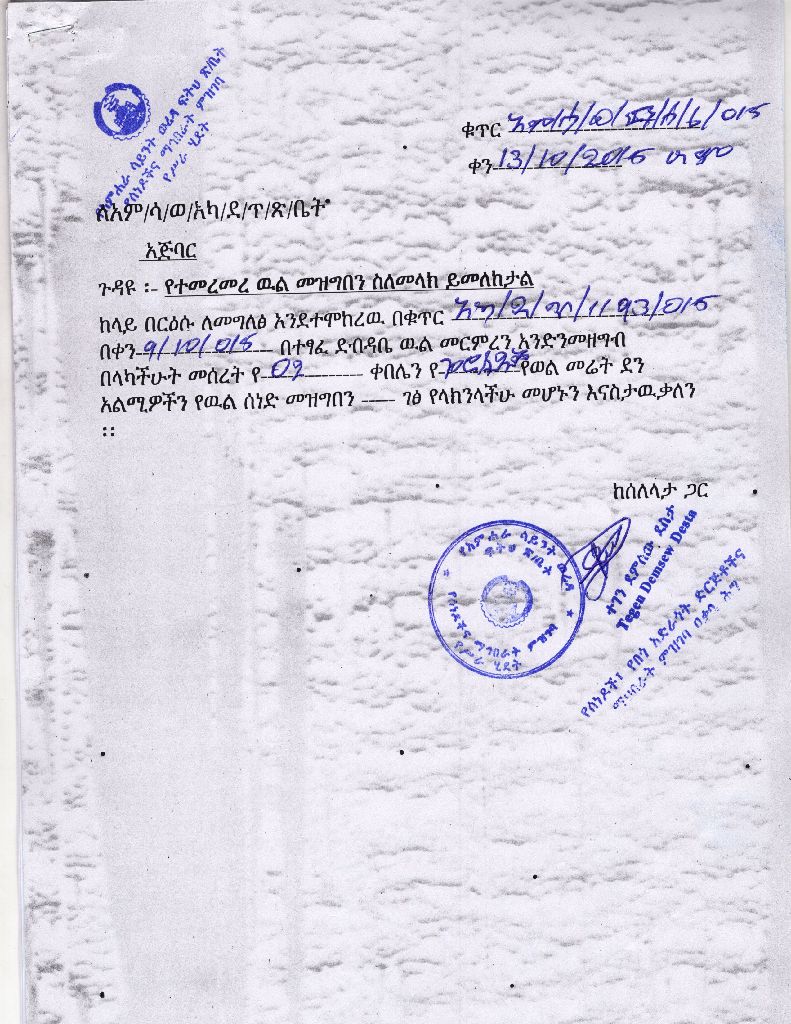 የአምሐራ ሳይንት ወረዳ ፍትህ ጽ/ቤት
የሰነዶችና ማኀበራት ምዝገባ
የሥራ ሂደት
ቁጥር
ቀን 13/10/2015 ዓ ም
ለአም/ሳ/ወ/አካ/ደ/ጥ/ጽ/ቤት
አጅባር
ጉዳዩ ፡- የተመረመረ ዉል መዝግበን ስለመላክ ይመለከታል
ከላይ በርዕሱ ለመግለፅ እንደተሞከረዉ በቁጥር 1193/015
በቀን 9/10/015 በተፃፈ ደብዳቤ ዉል መርምረን እንድንመዘግብ
በላካችሁት መሰረት የ 02 ቀበሌን የ የወል መሬት ደን
አልሚዎችን የዉል ሰነድ መዝግበን ---- ገፅ የላክንላችሁ መሆኑን እናስታዉቃለን
፡፡
ከሰለላታ ጋር
የአምሐራ ሳይንት ወረዳ
ፍትህ ጽ/ቤት
የሰነዶችና ማኀበራት ምዝገባ
የሥራ ሂደት
ተገን ደምሰው ደስታ
Tegen Demsew Desta
የሰነዶች፣ የበጎ አድራጎት ድርጅቶችና
ማህበራት ምዝገባ